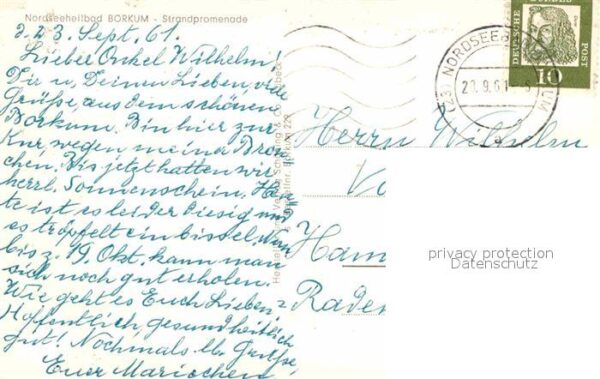 Nordseeheilbad BORKUM - Strandpromenade
d. 23. Sept. 61.
Lieber Onkel Wilhelm!
Dir u. Deinen Lieben, viele
Grüße, aus dem schönen
Borkum. Bin hier zur
Kur, wegen meina Bron
chen. Bis jetzt hatten wir
herrl. Sonnenschein. Heu
te ist es leider diesig und
es tröpfelt ein bissel. Nun
bis z. 19. Okt. kann man
sich noch gut erholen.
Wie geht es Euch Lieben?
Hoffentlich, gesundheitlich
gut! Nochmals lb. Grüße,
Euer Mariechen
DEUTSCHE BUNDESPOST
10
NORDSEEB
Herrn Wilhelm
Ham
Rade
privacy protection
Datenschutz